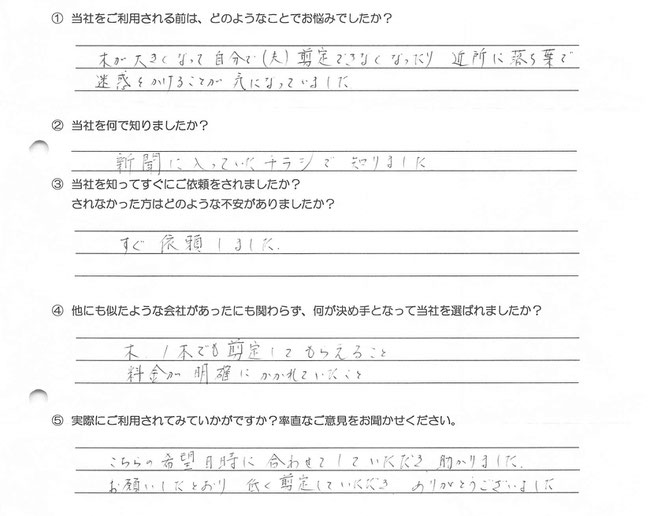 ① 当社をご利用される前は、どのようなことでお悩みでしたか？
木が大きくなって自分で(夫)剪定できなくなったり 近所に落ち葉で
迷惑をかけることが気になっていました
② 当社を何で知りましたか？
新聞に入っていたチラシで 知りました
③ 当社を知ってすぐにご依頼をされましたか？
されなかった方はどのような不安がありましたか？
すぐ 依頼しました.
④ 他にも似たような会社があったにも関わらず、何が決め手となって当社を選ばれましたか？
木 1本でも剪定してもらえること
料金が 明確に かかれていたこと
⑤ 実際にご利用されてみていかがですか？率直なご意見をお聞かせください。
こちらの希望日時に 合わせてしていただき 助かりました.
お願いしたとおり 低く剪定していただき ありがとうございました